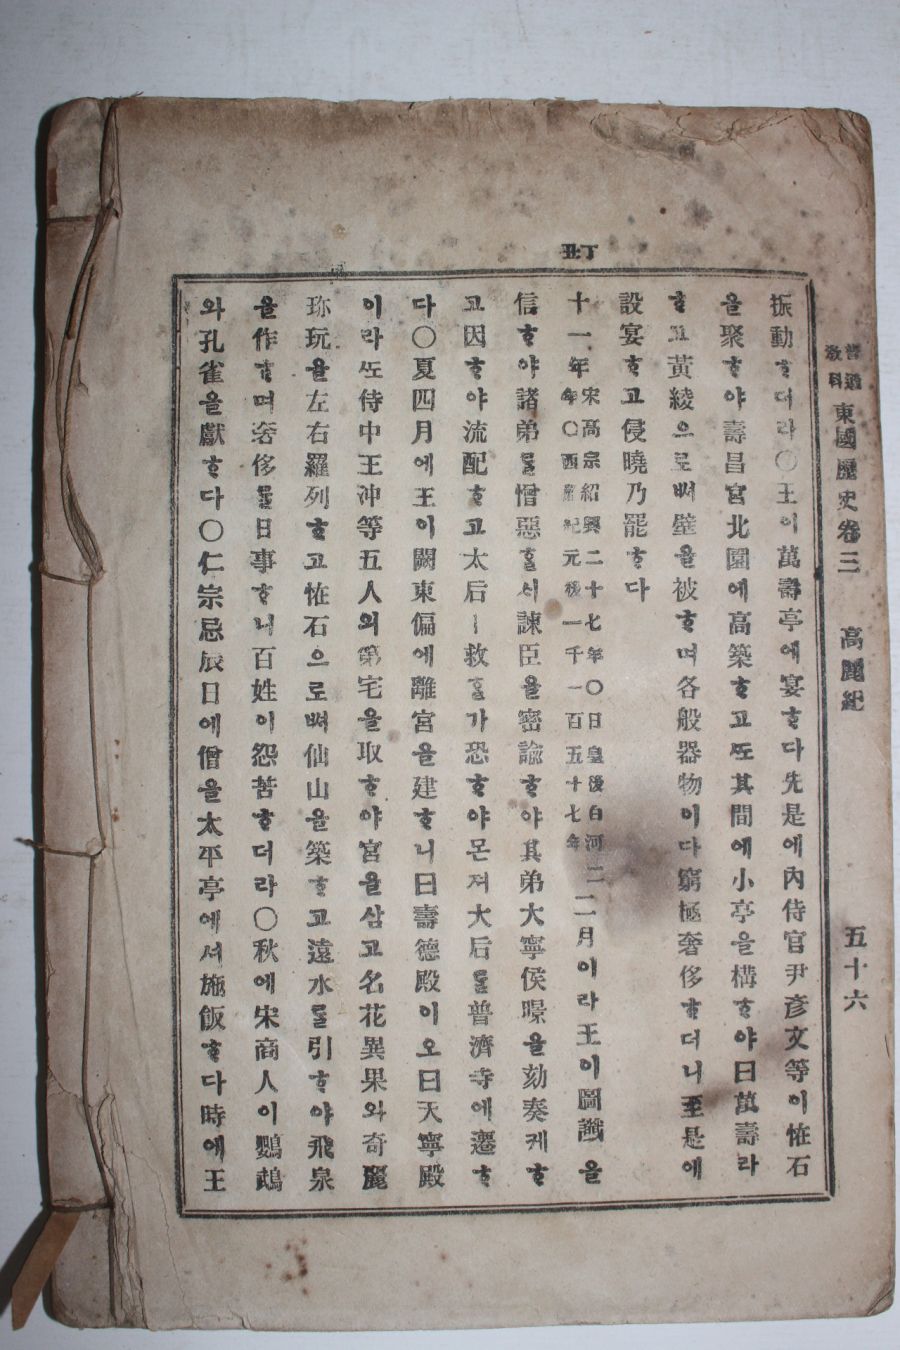 普通教科 東國歷史卷三 高麗紀 五十六
丁丑
振動ᄒᆞ더라○王이萬壽亭에宴ᄒᆞ다先是에內侍官尹彦文等이恠石
을聚ᄒᆞ야壽昌宮北園에高築ᄒᆞ고ᄯᅩ其間에小亭을構ᄒᆞ야曰萬壽라
ᄒᆞ고黃綾으로ᄡᅥ壁을被ᄒᆞ며各般器物이다窮極奢侈ᄒᆞ더니至是에
設宴ᄒᆞ고侵曉乃罷ᄒᆞ다
十一年宋高宗紹興二十七年○日皇後白河二年○西曆紀元後一千一百五十七年二月이라王이圖讖을
信ᄒᆞ야諸弟를憎惡ᄒᆞᆯᄉᆡ諫臣을密諭ᄒᆞ야其弟大寧侯暻을劾奏케ᄒᆞ
고因ᄒᆞ야流配ᄒᆞ고太后ㅣ救ᄒᆞᆯ가恐ᄒᆞ야몬져大后를普濟寺에遷ᄒᆞ
다○夏四月에王이闕東偏에離宮을建ᄒᆞ니曰壽德殿이오曰天寧殿
이라ᄯᅩ侍中王沖等五人의第宅을取ᄒᆞ야宮을삼고名花異果와奇麗
珎玩을左右羅列ᄒᆞ고恠石으로ᄡᅥ仙山을築ᄒᆞ고遠水를引ᄒᆞ야飛泉
을作ᄒᆞ며奢侈를日事ᄒᆞ니百姓이怨苦ᄒᆞ더라○秋에宋商人이鸚鵡
와孔雀을獻ᄒᆞ다○仁宗忌辰日에僧을太平亭에셔施飯ᄒᆞ다時에王